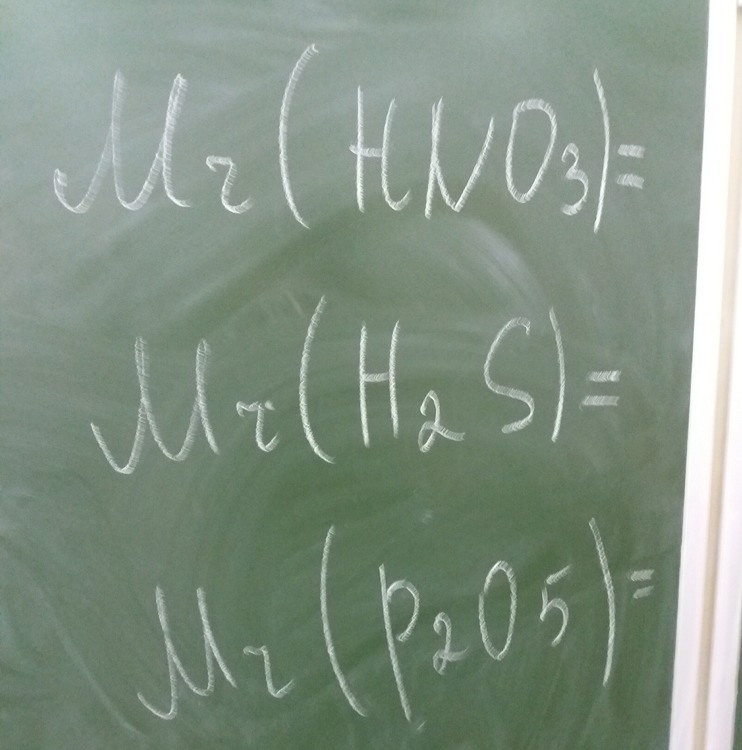 Mr (HNO₃)=
Mr (H₂S)=
Mr (P₂O5)=